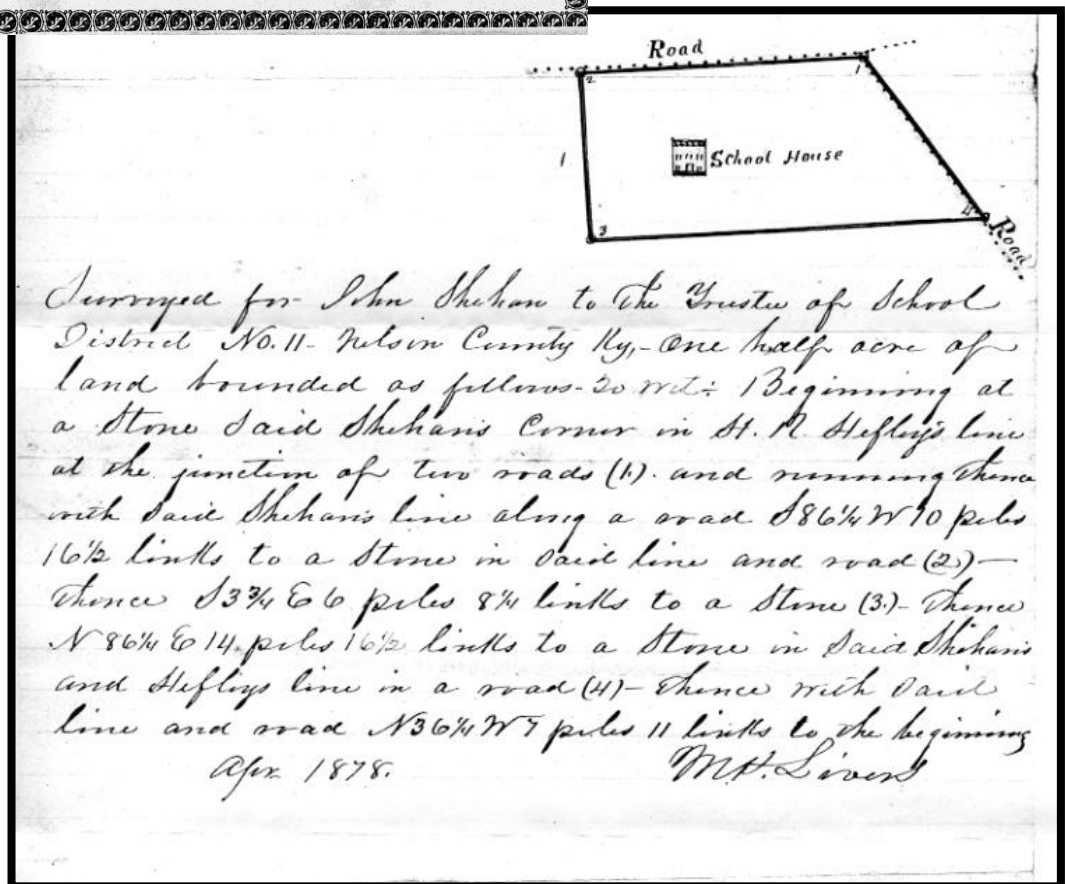 Road
2
1
1
School House
3
4
Road
Surveyed for John Shehan to the Trustee of School
District No. 11 - Nelson County Ky, - One half acre of
land bounded as follows - To wit:- Beginning at
a Stone Said Shehan's Corner in H. R. Hefley's line
at the junction of two roads (1.) and running thence
with Said Shehan's line along a road S 86¼ W 10 poles
16½ links to a Stone in Said line and road (2.) —
thence S 3¾ E 6 poles 8¼ links to a Stone (3.) - thence
N 86¼ E 14 poles 16½ links to a Stone in Said Shehan's
and Hefley's line in a road (4) - thence with Said
line and road N 36¼ W 7 poles 11 links to the beginning
Apr. 1878.